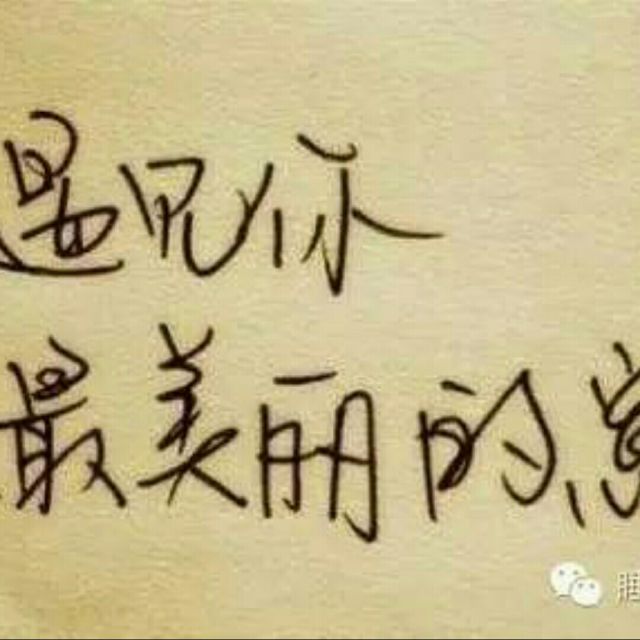 遇见你
最美丽的